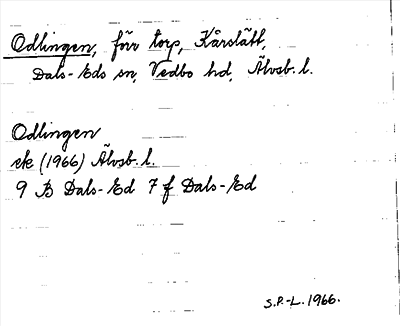 Odlingen, förr torp, Kårslätt,
Dals-Eds sn, Vedbo hd, Älvsb. l.
Odlingen
ek (1966) Älvsb. l.
9 B Dals-Ed 7 f Dals-Ed
S.P.-L. 1966.